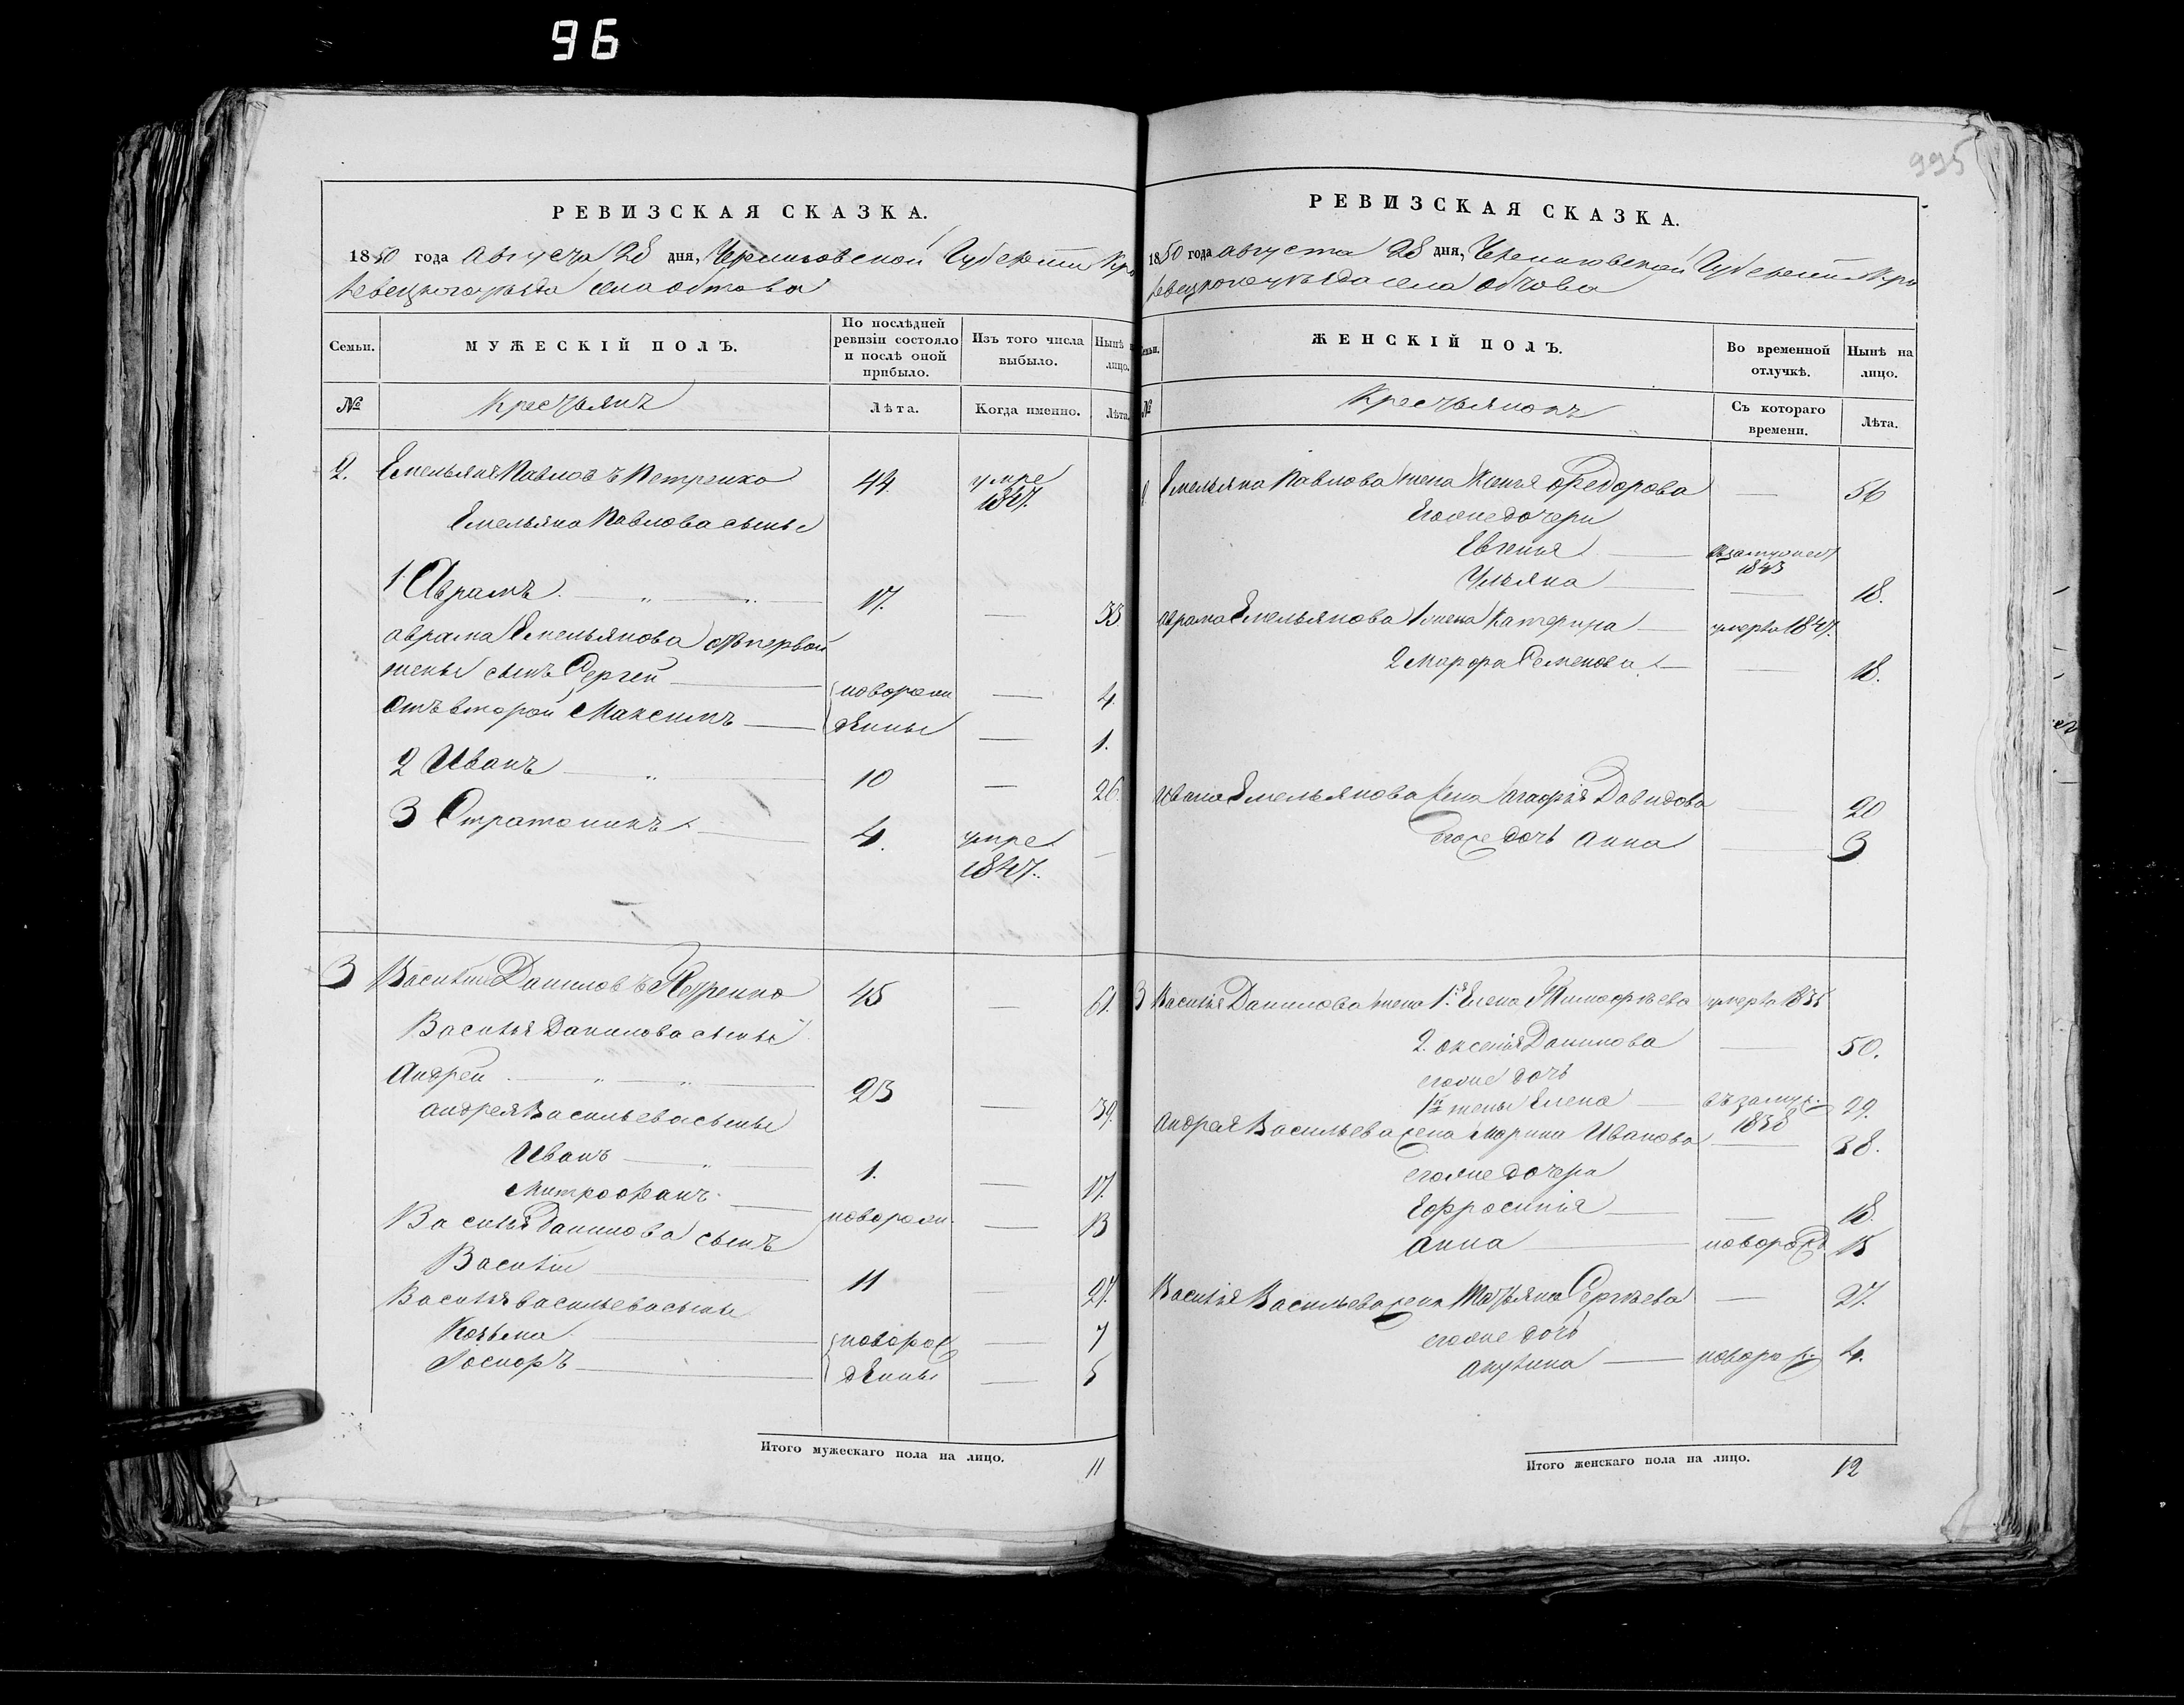 96
995
РЕВИЗСКАЯ СКАЗКА.
1850 года Августа 28 дня, Черниговской Губернии Кро
левецкого уезда села Обтова
Семьи.
МУЖЕСКІЙ ПОЛЪ.
По послѣдней ревизіи состояло и послѣ оной прибыло.
Изъ того числа выбыло.
Нынѣ на лицо.
№
Крестьянъ
Лѣта.
Когда именно.
Лѣта.
2. Емельянъ Павловъ Петренко 44. умре 1847.
Емельяна Павлова сыны
1. Аврамъ 17. — 33
Аврама Емельянова отъ первой
жены сынъ Сергей новорож — 4.
Отъ второй Максимъ денные — 1.
2 Иванъ 10 — 26.
3 Стратоникъ 4. умре 1847. —
3 Василий Даниловъ 45 — 61.
Василья Данилова сыны
Андрей 23 — 39.
Андрея Васильева сыны
Иванъ 1. — 17.
Митрофанъ новорож. — 13
Василья Данилова сынъ
Василий 11 — 27.
Василья Васильева сыны
Козьма новорож — 7
денные — 5
Итого мужескаго пола на лицо.
11
РЕВИЗСКАЯ СКАЗКА.
1850 года Августа 28 дня, Черниговской Губернии Кро
левецкого уезда села Обтова
Семьи.
ЖЕНСКІЙ ПОЛЪ.
Во временной отлучкѣ.
Нынѣ на лицо.
№
Крестьянокъ
Съ котораго времени.
Лѣта.
2 Емельяна Павлова жена Ксенья Федорова — 56
Его же дочери
Евгенья 1843
Ульяна — 18.
Аврама Емельянова 1 жена Катерина — умерла 1847.
2 Марфа Семенова — 18.
Ивана Емельянова жена Агафія Давидова — 20
Его же дочь Анна — 3
3 Василія Данилова жена 1.я Елена Тимофеева умерла 1835
2. Оксенія Данилова — 50.
его же дочь
1й жены Елена — въ замуж. 1838 29.
Андрея Васильева жена Марина Иванова — 38.
его же дочери
Ефросинія — 18.
Анна — новорожд 15
Василія Васильева жена Татьяна Сергеева — 27.
его же дочь
Акулина — новорож. 4.
Итого женскаго пола на лицо.
12